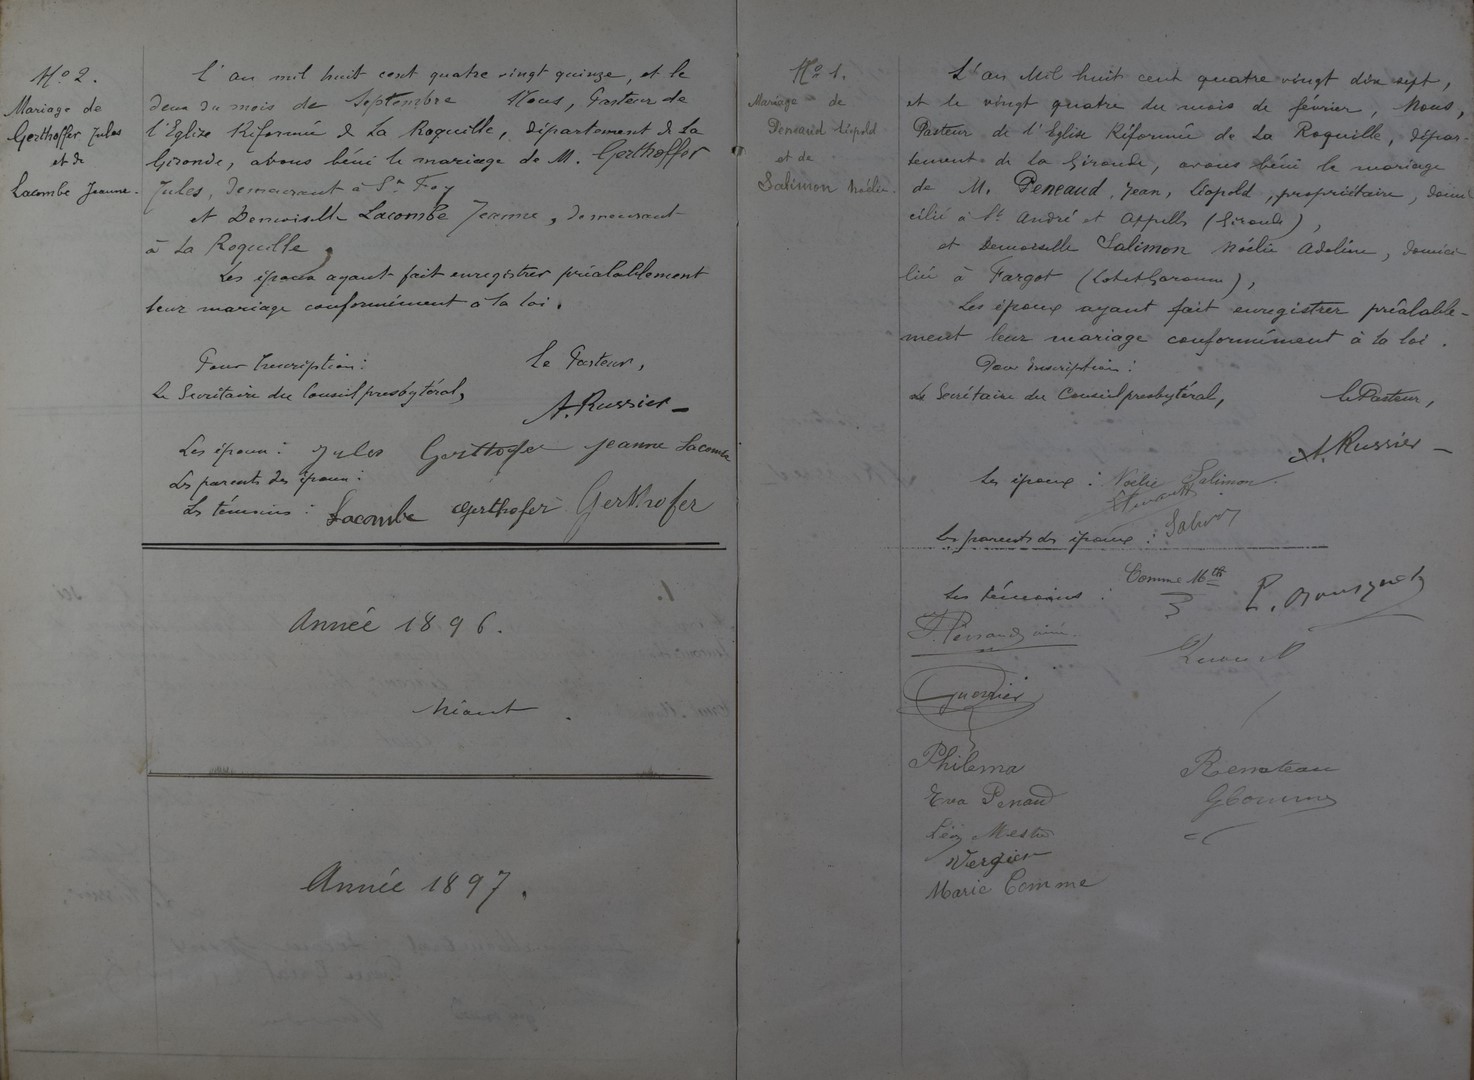 No 2.
Mariage de
Gerthoffer Jules
et de
Lacombe Jeanne.
L'an mil huit cent quatre vingt quinze, et le
deux du mois de Septembre Nous, Pasteur de
l'Eglise Réformée de La Roquille, département de La
Gironde, avons béni le mariage de M. Gerthoffer
Jules, demeurant à Ste Foy
et Demoiselle Lacombe Jeanne, demeurant
à La Roquille.
Les époux ayant fait enregistrer préalablement
leur mariage conformément à la loi.
Pour Inscription: Le Pasteur,
Le Secrétaire du Conseil presbytéral,
A. Russier
Les époux: Jules Gerthofer Jeanne Lacombe
Les parents des époux:
Les témoins: Lacombe Gerthofer Gerthofer
Année 1896.
Néant.
Année 1897.
No 1.
Mariage de
Peneaud Léopold
et de
Salimon Noélie.
L'an Mil huit cent quatre vingt dix sept,
et le vingt quatre du mois de février, Nous,
Pasteur de l'Eglise Réformée de La Roquille, dépar-
tement de la Gironde, avons béni le mariage
de M. Peneaud, Jean, Léopold, propriétaire, domi
cilié à St. André et Appelles (Gironde),
et Demoiselle Salimon Noélie Adeline, domici
liée à Fargot (Lot et Garonne),
Les époux ayant fait enregistrer préalable-
ment leur mariage conformément à la loi.
Pour Inscription:
Le Secrétaire du Conseil presbytéral, Le Pasteur,
A. Russier
Les époux: Noélie Salimon
Les parents des époux:
Les témoins: Comme
P. Bousquet
Philema
Eva Penaud
Vergier
Marie Comme
Renateau
GComme